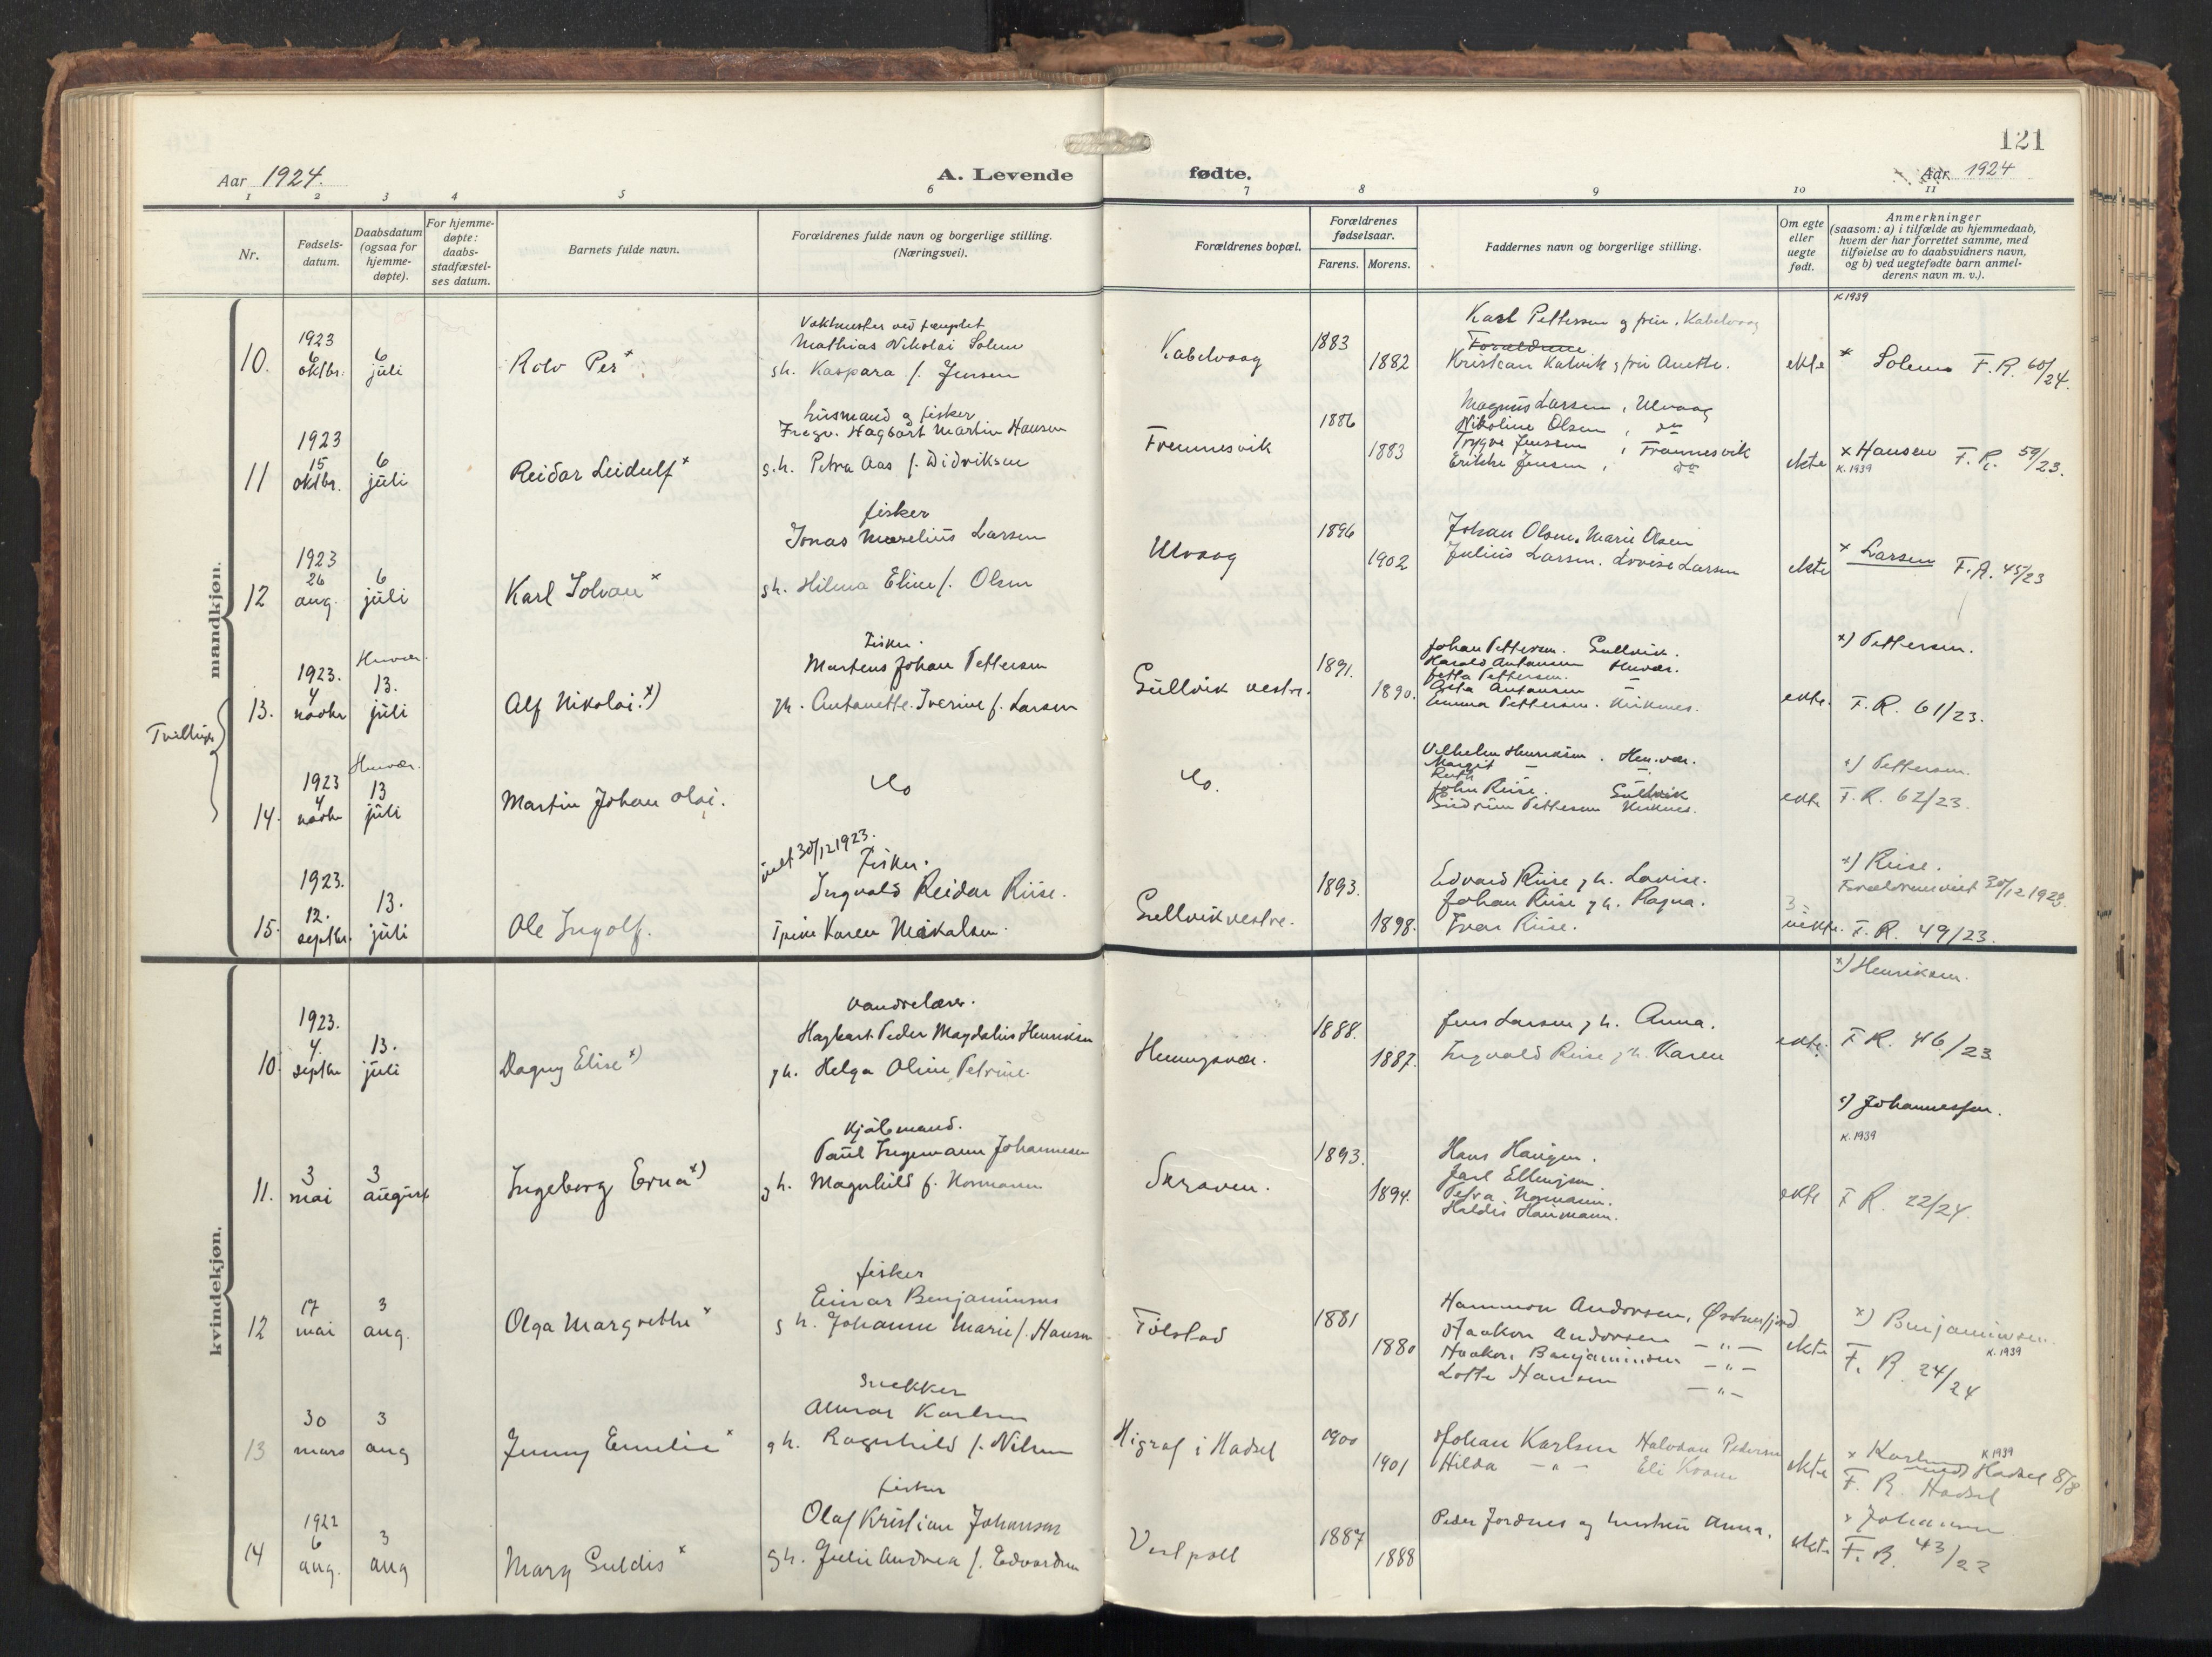 121
Aar 1924.
A. Levende
fødte.
Aar 1924
1 2 3 4 5 6 7 8 9 10 11
Nr.
Fødsels-
datum.
Daabsdatum
(ogsaa for
hjemme-
døpte).
For hjemme-
døpte:
daabs-
stadfæstel-
ses datum.
Barnets fulde navn.
Forældrenes fulde navn og borgerlige stilling.
(Næringsvei).
Forældrenes bopæl.
Forældrenes
fødselsaar.
Farens. Morens.
Faddernes navn og borgerlige stilling.
Om egte
eller
uegte
født.
Anmerkninger
(saasom: a) i tilfælde av hjemmedaab,
hvem der har forrettet samme, med
tilføielse av to daabsvidners navn,
og b) ved uegtefødte barn anmel-
derens navn m. v.).
mandkjøn.
K 1939
10.
1923
6
oktbr.
6
juli
Rolv Per x
Mathias Nikolai Solem
gh. Kaspara f. Jensen
Kabelvaag
1883
1882
Karl Pettersen g fru. Kabelvaag
Forældrene
Kristian Kalvik g fru Anette.
ekte
x Solem F.R. 60/24.
11
1923
15
oktbr.
6
juli
Reidar Leidulf x
husmand g fisker
Fregv. Hagbart Martin Hansen
g.h. Petra Aas f. Didriksen
Fremnesvik
1886
1883
Magnus Larsen, Ulvaag
Nikoline Olsen, do
Trygve Jenssen, Framnesvik
Erikke Jensen, do
ekte
x Hansen F.R. 59/23.
K. 1939
12
1923
26
aug.
6
juli
Karl Johan x
fisker
Jonas Marelius Larsen
gh. Hilma Eline f. Olsen
Ulvaag
1896
1902
Johan Olsen. Marie Olsen
Julius Larsen. Lovise Larsen
ekte
x Larsen F.R. 45/23
Tvillinger
13.
1923.
4
novbr
13.
juli
Alf Nikolai. x)
Fisker.
Martens Johan Pettersen
gh. Antonette Iverine f. Larsen
Gullvik vestre.
1891.
1890.
Johan Pettersen. Gullvik.
Harald Antonsen
Jetta Pettersen.
Emma Pettersen. Kirknes.
ekte.
x) Pettersen.
F.R. 61/23.
14.
1923
4
novbr
13
juli
Martin Johan Olai.
do
do.
Vilhelm Henriksen. Hen.vær.
Margit
Ruth
John Riise. Gullvik
Pettersen Kirknes.
ekte
x) Pettersen.
F.R. 62/23.
15.
1923.
12.
septbr.
13.
juli
Ole Ingolf.
viet 30/12 1923.
Fisker.
Ingvald Reidar Riise.
Karen Mikalsen.
Gullvik vestre.
1893.
1898.
Edvard Riise g h. Lovise.
Johan Riise g h. Ragna.
Ivar Riise.
uekte.
x) Riise.
Forældrene viet 30/12 1923.
F.R. 49/23.
kvindekjøn.
10.
1923.
4.
septbr
13.
juli
Dagny Elise x)
Vandrelærer.
Hagbart Peder Magdalus Henriksen
gh. Helga Oline Petrine.
Henningsvær.
1888.
1887.
Jens Larsen g h. Anna.
Ingvald Riise g h. Karen
ekte.
x) Henriksen.
F.R. 46/23
11.
3
mai
3
august
Ingeborg Erna x)
Kjøbmand.
Paul Ingemann Johannesen
gh. Magnhild f. Normann
Skraaven.
1893.
1894.
Hans Haugen.
Jarl Ellingsen.
Petra Normann.
Haldis Normann.
ekte
x) Johannessen.
K. 1939
F R. 22/24.
12
17
mai
3
aug.
Olga Margrethe x
fisker
Einar Benjaminsen
g h. Johanne Marie f. Hansen
Følstad
1881
1880
Hammon Andorsen, Østnesfjord
Haakon Andorsen – " –
Haakon Benjaminsen – " –
Lotte Hansen – " –
ekte
x) Benjaminsen.
K. 1939
F. R 24/24
13
30
mars
3
aug
Jenny Emelie x
Snekker
Almar Karlsen
gh. Ragnhild f. Nilsen
Higraf i Hadsel
1900
1901
Johan Karlsen Halvdan Pedersen
Hilda – " – Eli Krane
ekte
x Karlsen K 1939
Hadsel 8/8
F. R. Hadsel
14
1922
6
aug.
3
aug
Mary Guldis x
fisker
Olaf Kristian Johansen
gh. Julie Andrea f. Edvardsen
Vestpoll
1887
1888
Peder Jordnes og hustru Anna.
ekte
x Johansen.
F. R. 43/22